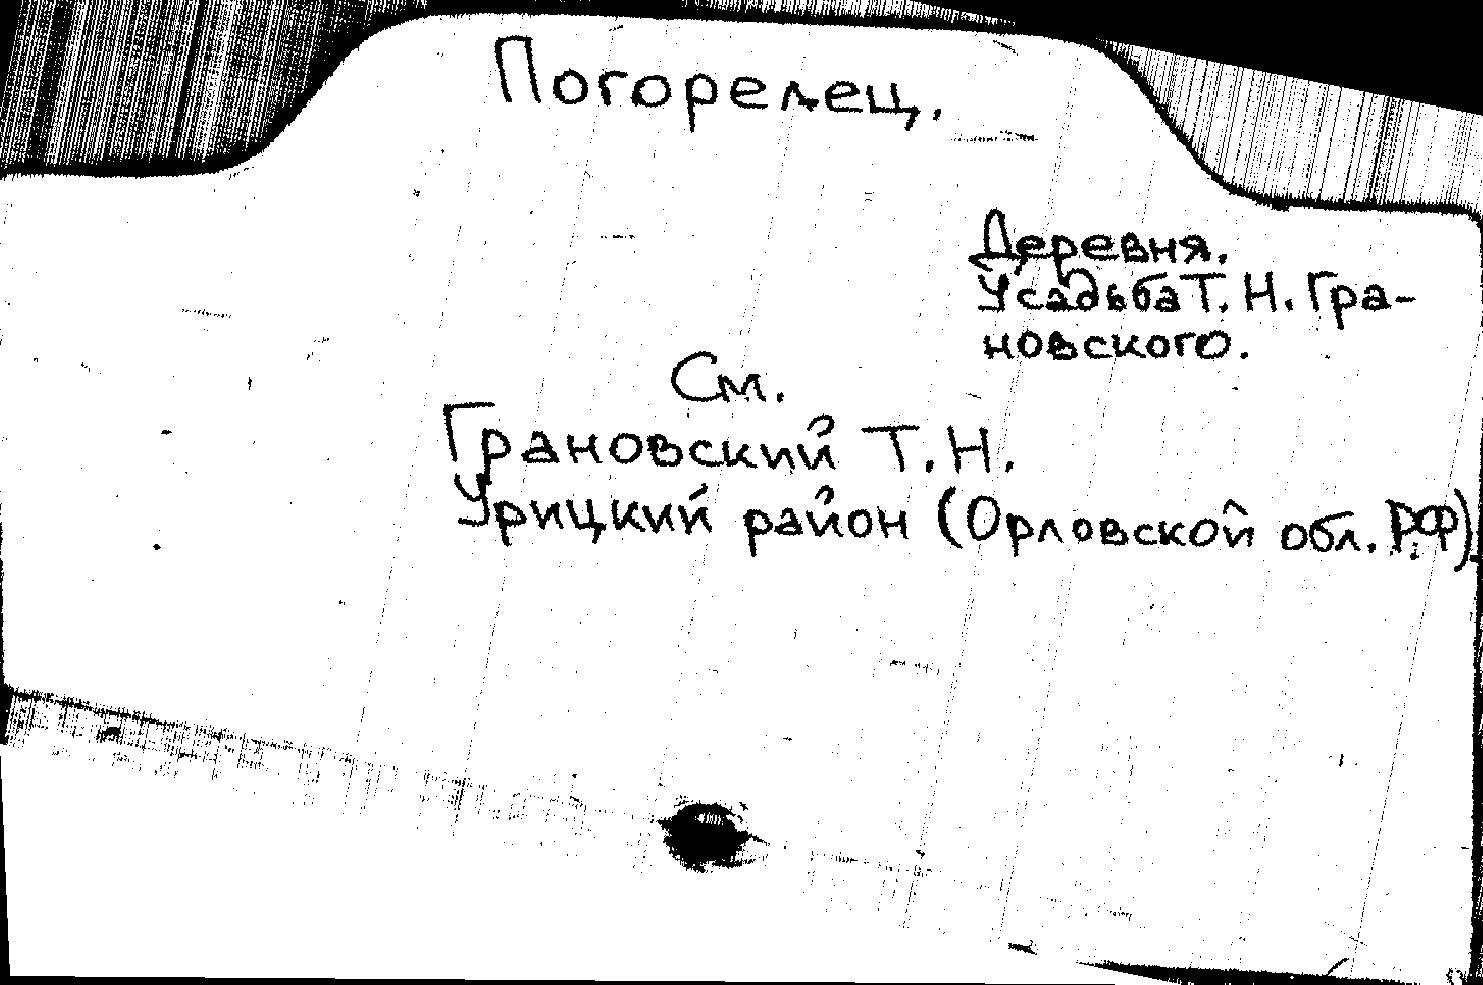 Погорелец.
Деревня.
Усадьба Т. Н. Гра-
новского.
См.
Грановский Т. Н.
Урицкий район (Орловской обл. РФ).